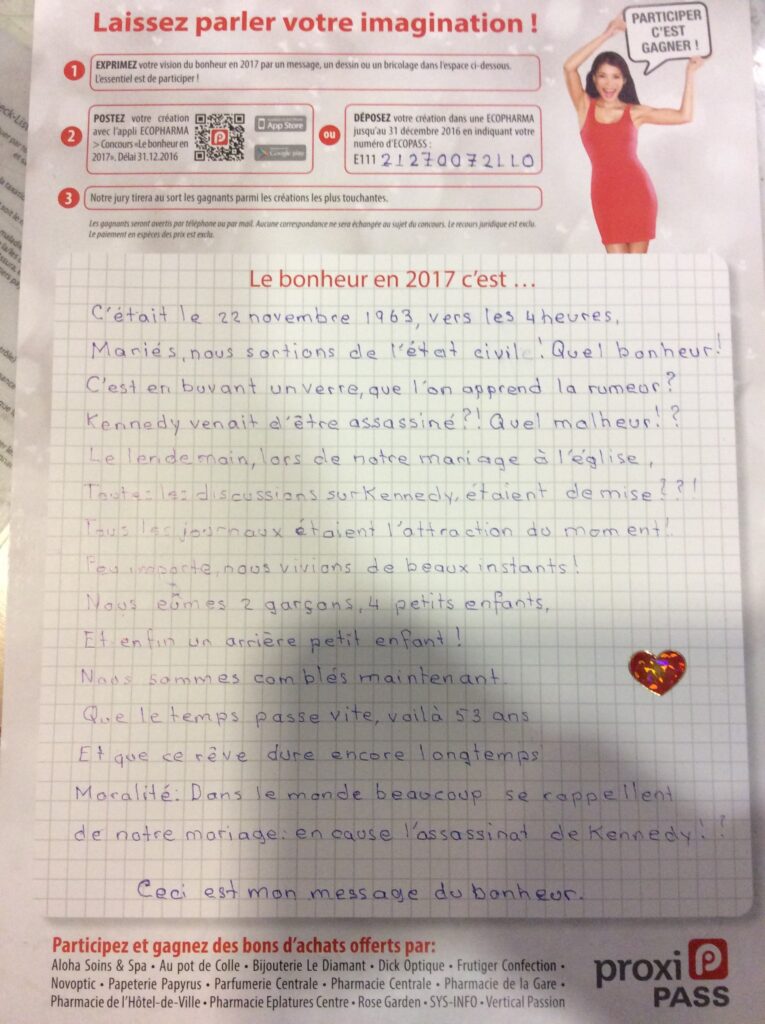 Laissez parler votre imagination !
PARTICIPER
C'EST
GAGNER !
1
EXPRIMEZ votre vision du bonheur en 2017 par un message, un dessin ou un bricolage dans l'espace ci-dessous.
L'essentiel est de participer !
2
POSTEZ votre création
avec l'appli ECOPHARMA
> Concours «Le bonheur en
2017». Délai 31.12.2016
App Store
Google play
ou
DÉPOSEZ votre création dans une ECOPHARMA
jusqu'au 31 décembre 2016 en indiquant votre
numéro d'ECOPASS :
E111 21270072110
3
Notre jury tirera au sort les gagnants parmi les créations les plus touchantes.
Les gagnants seront avertis par téléphone ou par mail. Aucune correspondance ne sera échangée au sujet du concours. Le recours juridique est exclu.
Le paiement en espèces des prix est exclu.
Le bonheur en 2017 c'est ...
C'était le 22 novembre 1963, vers les 4 heures,
Mariés, nous sortions de l'état civil! Quel bonheur!
C'est en buvant un verre, que l'on apprend la rumeur?
Kennedy venait d'être assassiné?! Quel malheur!?
Le lendemain, lors de notre mariage à l'église,
Toutes les discussions sur Kennedy, étaient de mise??!
Tous les journaux étaient l'attraction du moment!
Peu importe, nous vivions de beaux instants!
Nous eûmes 2 garçons, 4 petits enfants,
Et enfin un arrière petit enfant!
Nous sommes comblés maintenant.
Que le temps passe vite, voilà 53 ans
Et que ce rêve dure encore longtemps
Moralité: Dans le monde beaucoup se rappellent
de notre mariage: en cause l'assassinat de Kennedy!?
Ceci est mon message du bonheur.
Participez et gagnez des bons d'achats offerts par:
Aloha Soins & Spa • Au pot de Colle • Bijouterie Le Diamant • Dick Optique • Frutiger Confection •
Novoptic • Papeterie Papyrus • Parfumerie Centrale • Pharmacie Centrale • Pharmacie de la Gare •
Pharmacie de l'Hôtel-de-Ville • Pharmacie Eplatures Centre • Rose Garden • SYS-INFO • Vertical Passion
proxi
PASS